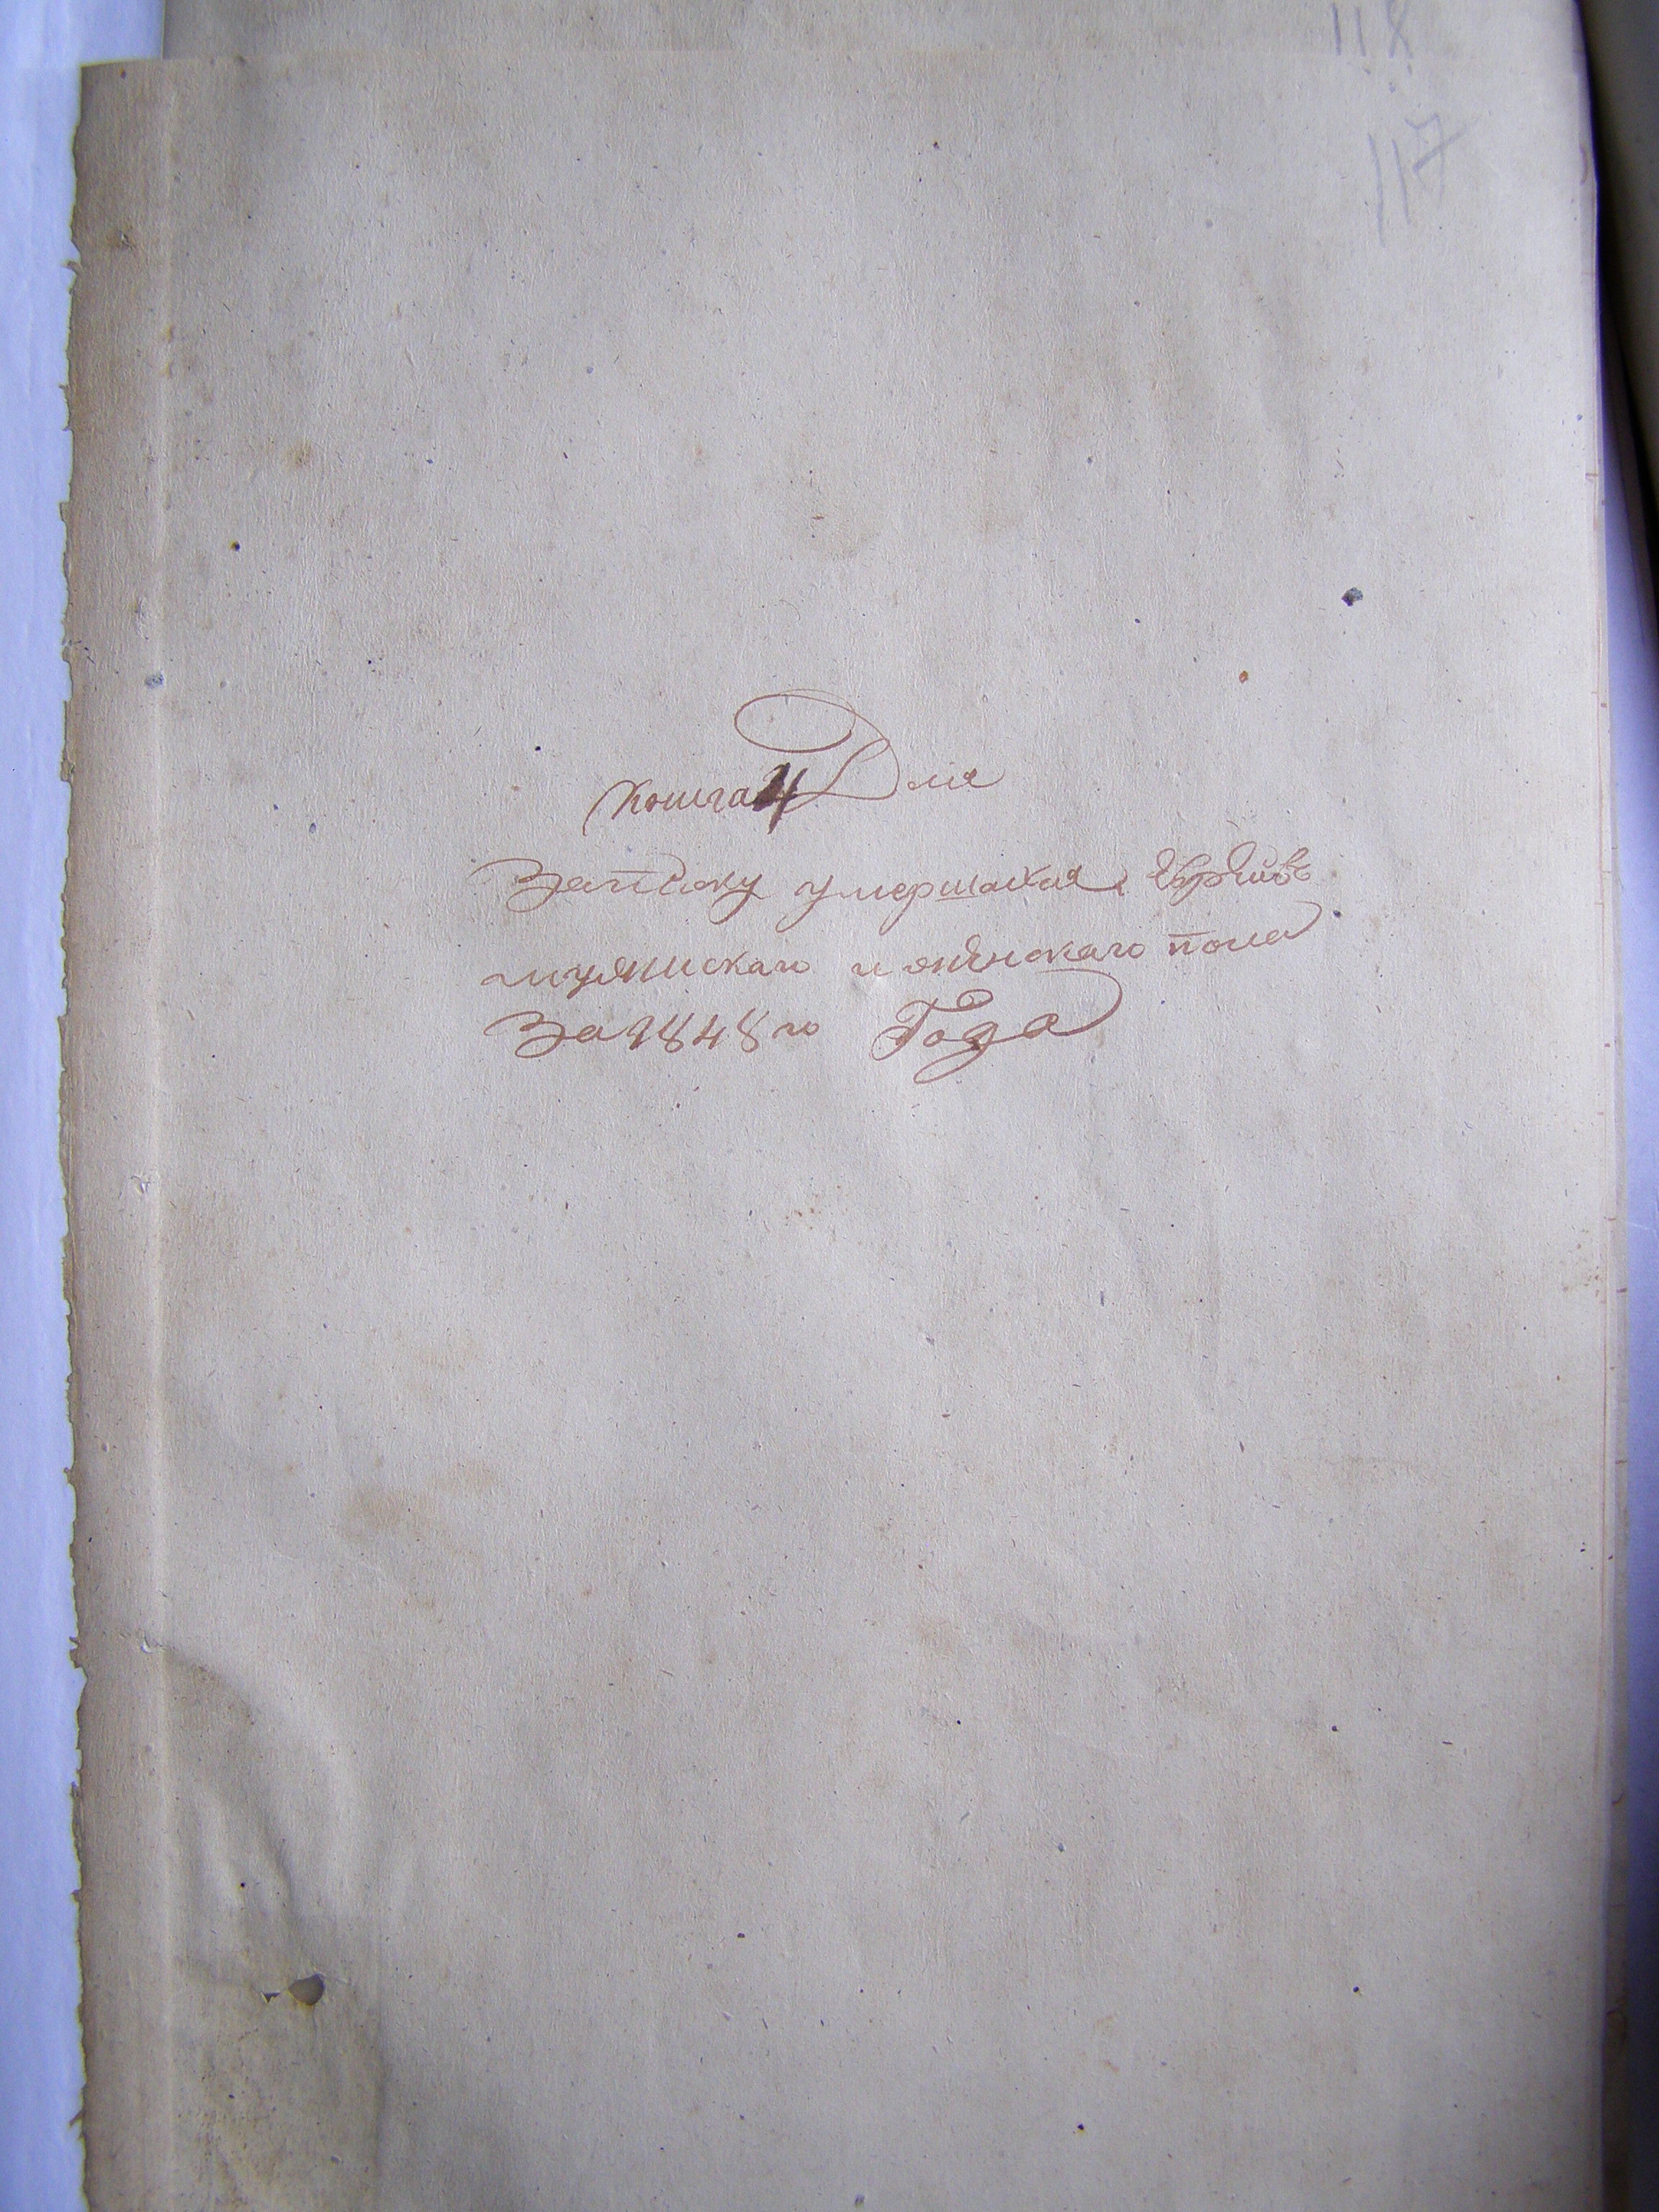 118
117
Книга 4 Для
Записку умершихъ Евреивъ
мужискаго и женскаго пола
За 1848 го Года